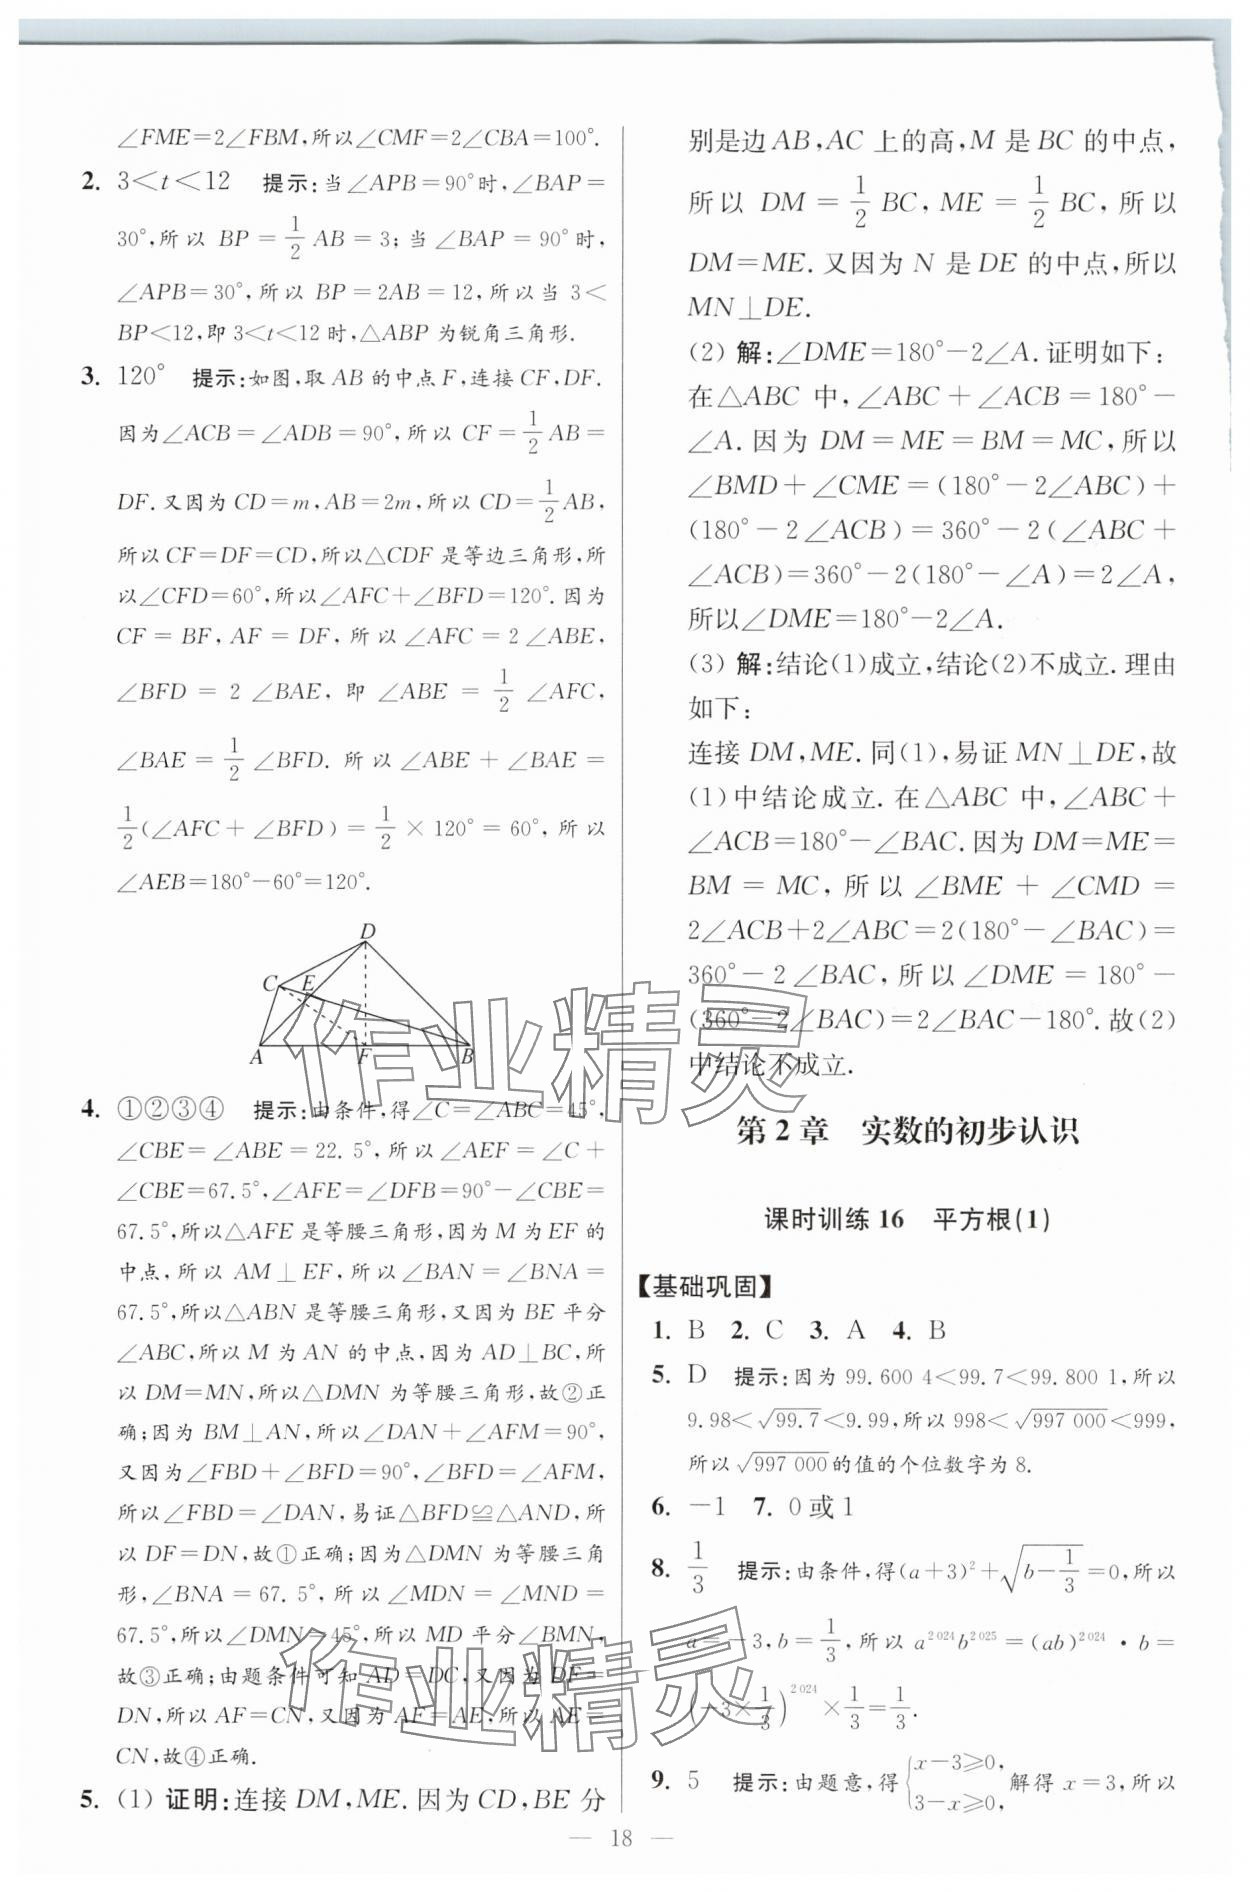 ∠FME=2∠FBM,所以∠CMF=2∠CBA=100°.
2. 3<t<12 提示:当∠APB=90°时,∠BAP=
30°,所以 BP=1/2 AB=3;当∠BAP=90°时,
∠APB=30°,所以 BP=2AB=12,所以当 3<
BP<12,即 3<t<12 时,△ABP 为锐角三角形.
3. 120° 提示:如图,取 AB 的中点 F,连接 CF,DF.
因为∠ACB=∠ADB=90°,所以 CF=1/2 AB=
DF.又因为 CD=m,AB=2m,所以 CD=1/2 AB,
所以 CF=DF=CD,所以△CDF 是等边三角形,所
以∠CFD=60°,所以∠AFC+∠BFD=120°.因为
CF=BF,AF=DF,所以∠AFC=2∠ABE,
∠BFD=2∠BAE,即∠ABE=1/2∠AFC,
∠BAE=1/2∠BFD.所以∠ABE+∠BAE=
1/2(∠AFC+∠BFD)=1/2×120°=60°,所以
∠AEB=180°-60°=120°.
D
C E
A F B
4. ①②③④ 提示:由条件,得∠C=∠ABC=45°,
∠CBE=∠ABE=22.5°,所以∠AEF=∠C+
∠CBE=67.5°,∠AFE=∠DFB=90°-∠CBE=
67.5°,所以△AFE 是等腰三角形,因为 M 为 EF 的
中点,所以 AM⊥EF,所以∠BAN=∠BNA=
67.5°,所以△ABN 是等腰三角形,又因为 BE 平分
∠ABC,所以 M 为 AN 的中点,因为 AD⊥BC,所
以 DM=MN,所以△DMN 为等腰三角形,故②正
确;因为 BM⊥AN,所以∠DAN+∠AFM=90°,
又因为∠FBD+∠BFD=90°,∠BFD=∠AFM,
所以∠FBD=∠DAN,易证△BFD≌△AND,所
以 DF=DN,故①正确;因为△DMN 为等腰三角
形,∠BNA=67.5°,所以∠MDN=∠MND=
67.5°,所以∠DMN=45°,所以 MD 平分∠BMN,
故③正确;由题条件可知 AD=DC,又因为 DF=
DN,所以 AF=CN,又因为 AF=AE,所以 AE=
CN,故④正确.
5. (1) 证明:连接 DM,ME.因为 CD,BE 分
别是边 AB,AC 上的高,M 是 BC 的中点,
所以 DM=1/2 BC,ME=1/2 BC,所以
DM=ME.又因为 N 是 DE 的中点,所以
MN⊥DE.
(2) 解:∠DME=180°-2∠A.证明如下:
在△ABC 中,∠ABC+∠ACB=180°-
∠A.因为 DM=ME=BM=MC,所以
∠BMD+∠CME=(180°-2∠ABC)+
(180°-2∠ACB)=360°-2(∠ABC+
∠ACB)=360°-2(180°-∠A)=2∠A,
所以∠DME=180°-2∠A.
(3) 解:结论(1)成立,结论(2)不成立.理由
如下:
连接 DM,ME.同(1),易证 MN⊥DE,故
(1)中结论成立.在△ABC 中,∠ABC+
∠ACB=180°-∠BAC.因为 DM=ME=
BM=MC,所以∠BME+∠CMD=
2∠ACB+2∠ABC=2(180°-∠BAC)=
360°-2∠BAC,所以∠DME=180°-
(360°-2∠BAC)=2∠BAC-180°.故(2)
中结论不成立.
第 2 章 实数的初步认识
课时训练 16 平方根(1)
【基础巩固】
1. B 2. C 3. A 4. B
5. D 提示:因为 99.600 4<99.7<99.800 1,所以
9.98<√99.7<9.99,所以 998<√997 000<999,
所以√997 000的值的个位数字为 8.
6. -1 7. 0 或 1
8. 1/3 提示:由条件,得(a+3)²+√(b-1/3)=0,所以
a=-3,b=1/3,所以 a²⁰²⁴b²⁰²⁵=(ab)²⁰²⁴·b=
(-3×1/3)²⁰²⁴×1/3=1/3.
9. 5 提示:由题意,得{x-3≥0, 3-x≥0, 解得 x=3,所以
— 18 —
作业精灵
作业精灵